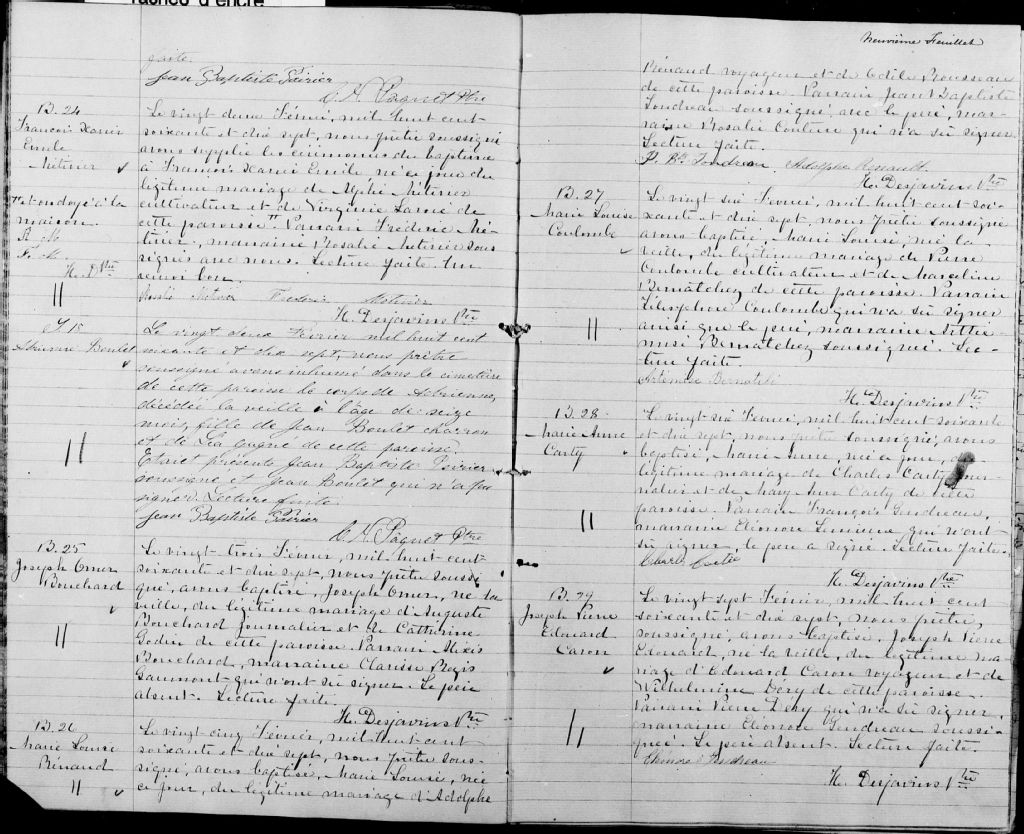 Tachée d'encre
faite.
Jean Baptiste Poirier
C. A. Paquet Ptre
B. 24
François Xavier
Emile
Métivier
Le vingt deux Février, mil huit cent
soixante et dix sept, nous prêtre soussigné
avons supplée les cérémonies du baptême
à François Xavier Emile né ce jour du
légitime mariage de Métivier
cultivateur et de Virginie Lavoie de
cette paroisse. Parrain Fréderic Mé-
tivier, marraine Rosalie Métivier sous
signés avec nous. Lecture faite. Un
renvoi bon.
et ondoyé à la
maison.
R. M.
F. M.
H. D. Ptre
Rosalie Métivier Frederic Métivier
H. Desjarvins Ptre
S. 15
Adrienne Boulet
Le vingt deux Février mil huit cent
soixante et dix sept, nous prêtre
soussigné avons inhumé dans le cimetière
de cette paroisse le corps de Adrienne,
décédée la veille à l'âge de seize
mois, fille de Jean Boulet charron
et de Léa Gagné de cette paroisse.
Etaient présents Jean Baptiste Poirier
soussigné et Jean Boulet qui n'a pu
signer. Lecture faite.
Jean Baptiste Poirier
C. A. Paquet Ptre
B. 25
Joseph Omer
Bouchard
Le vingt-trois Février, mil huit cent
soixante et dix sept, nous prêtre souss-
gné, avons baptisé, Joseph Omer, né la
veille, du légitime mariage d'Auguste
Bouchard Journalier et de Catherine
Godin de cette paroisse. Parrain Alexis
Bouchard, marraine Clarisse Régis
Gaumont qui n'ont su signer. Le père
absent. Lecture faite.
H. Desjarvins Ptre
B. 26
Marie Louise
Rénaud
Le vingt cinq Février, mil huit cent
soixante et dix sept, nous prêtre sous-
signé, avons baptisé, Marie Louise, née
ce jour, du légitime mariage d'Adolphe
Neuvième Feuillet
Rénaud voyageur et de Odile Rousseau
de cette paroisse. Parrain Jean Baptiste
Gendreau soussigné avec le père, mar-
raine Rosalie Couture qui n'a su signer
Lecture faite.
J. Bte Gendreau Adolphe Renault
H. Desjarvins Ptre
B. 27
Marie Louise
Coulombe
Le vingt six Février, mil huit cent soi-
xante et dix sept, nous prêtre soussigné
avons baptisé, Marie Louise, née la
veille, du légitime mariage de Pierre
Coulombe cultivateur et de Marceline
Bernatchez de cette paroisse. Parrain
Télesphore Coulombe qui n'a su signer
ainsi que le père, marraine Arthé-
mise Bernatchez soussignée. Lec-
ture faite.
H. Desjarvins Ptre
B. 28
Marie Anne
Carty
Le vingt-six Février, mil huit cent soixante
et dix sept, nous prêtre soussigné, avons
baptisé, Marie Anne, née ce jour, du
légitime mariage de Charles Carty jour-
nalier et de Mary Ann Carty de cette
paroisse. Parrain François Gendreau,
marraine Eléonore Lemieux qui n'ont
su signer, le père a signé. Lecture faite.
H. Desjarvins Ptre
B. 29
Joseph Pierre
Edouard
Caron
Le vingt sept Février, mil huit cent
soixante et dix sept, nous prêtre,
soussigné, avons baptisé, Joseph Pierre
Edouard, né la veille, du légitime ma-
riage d'Edouard Caron voyageur et de
Wilhelmine Dery de cette paroisse.
Parrain Pierre Dery qui n'a su signer,
marraine Eléonore Gendreau soussi-
gnée. Le père absent. Lecture faite.
Eléonore Gendreau
H. Desjarvins Ptre